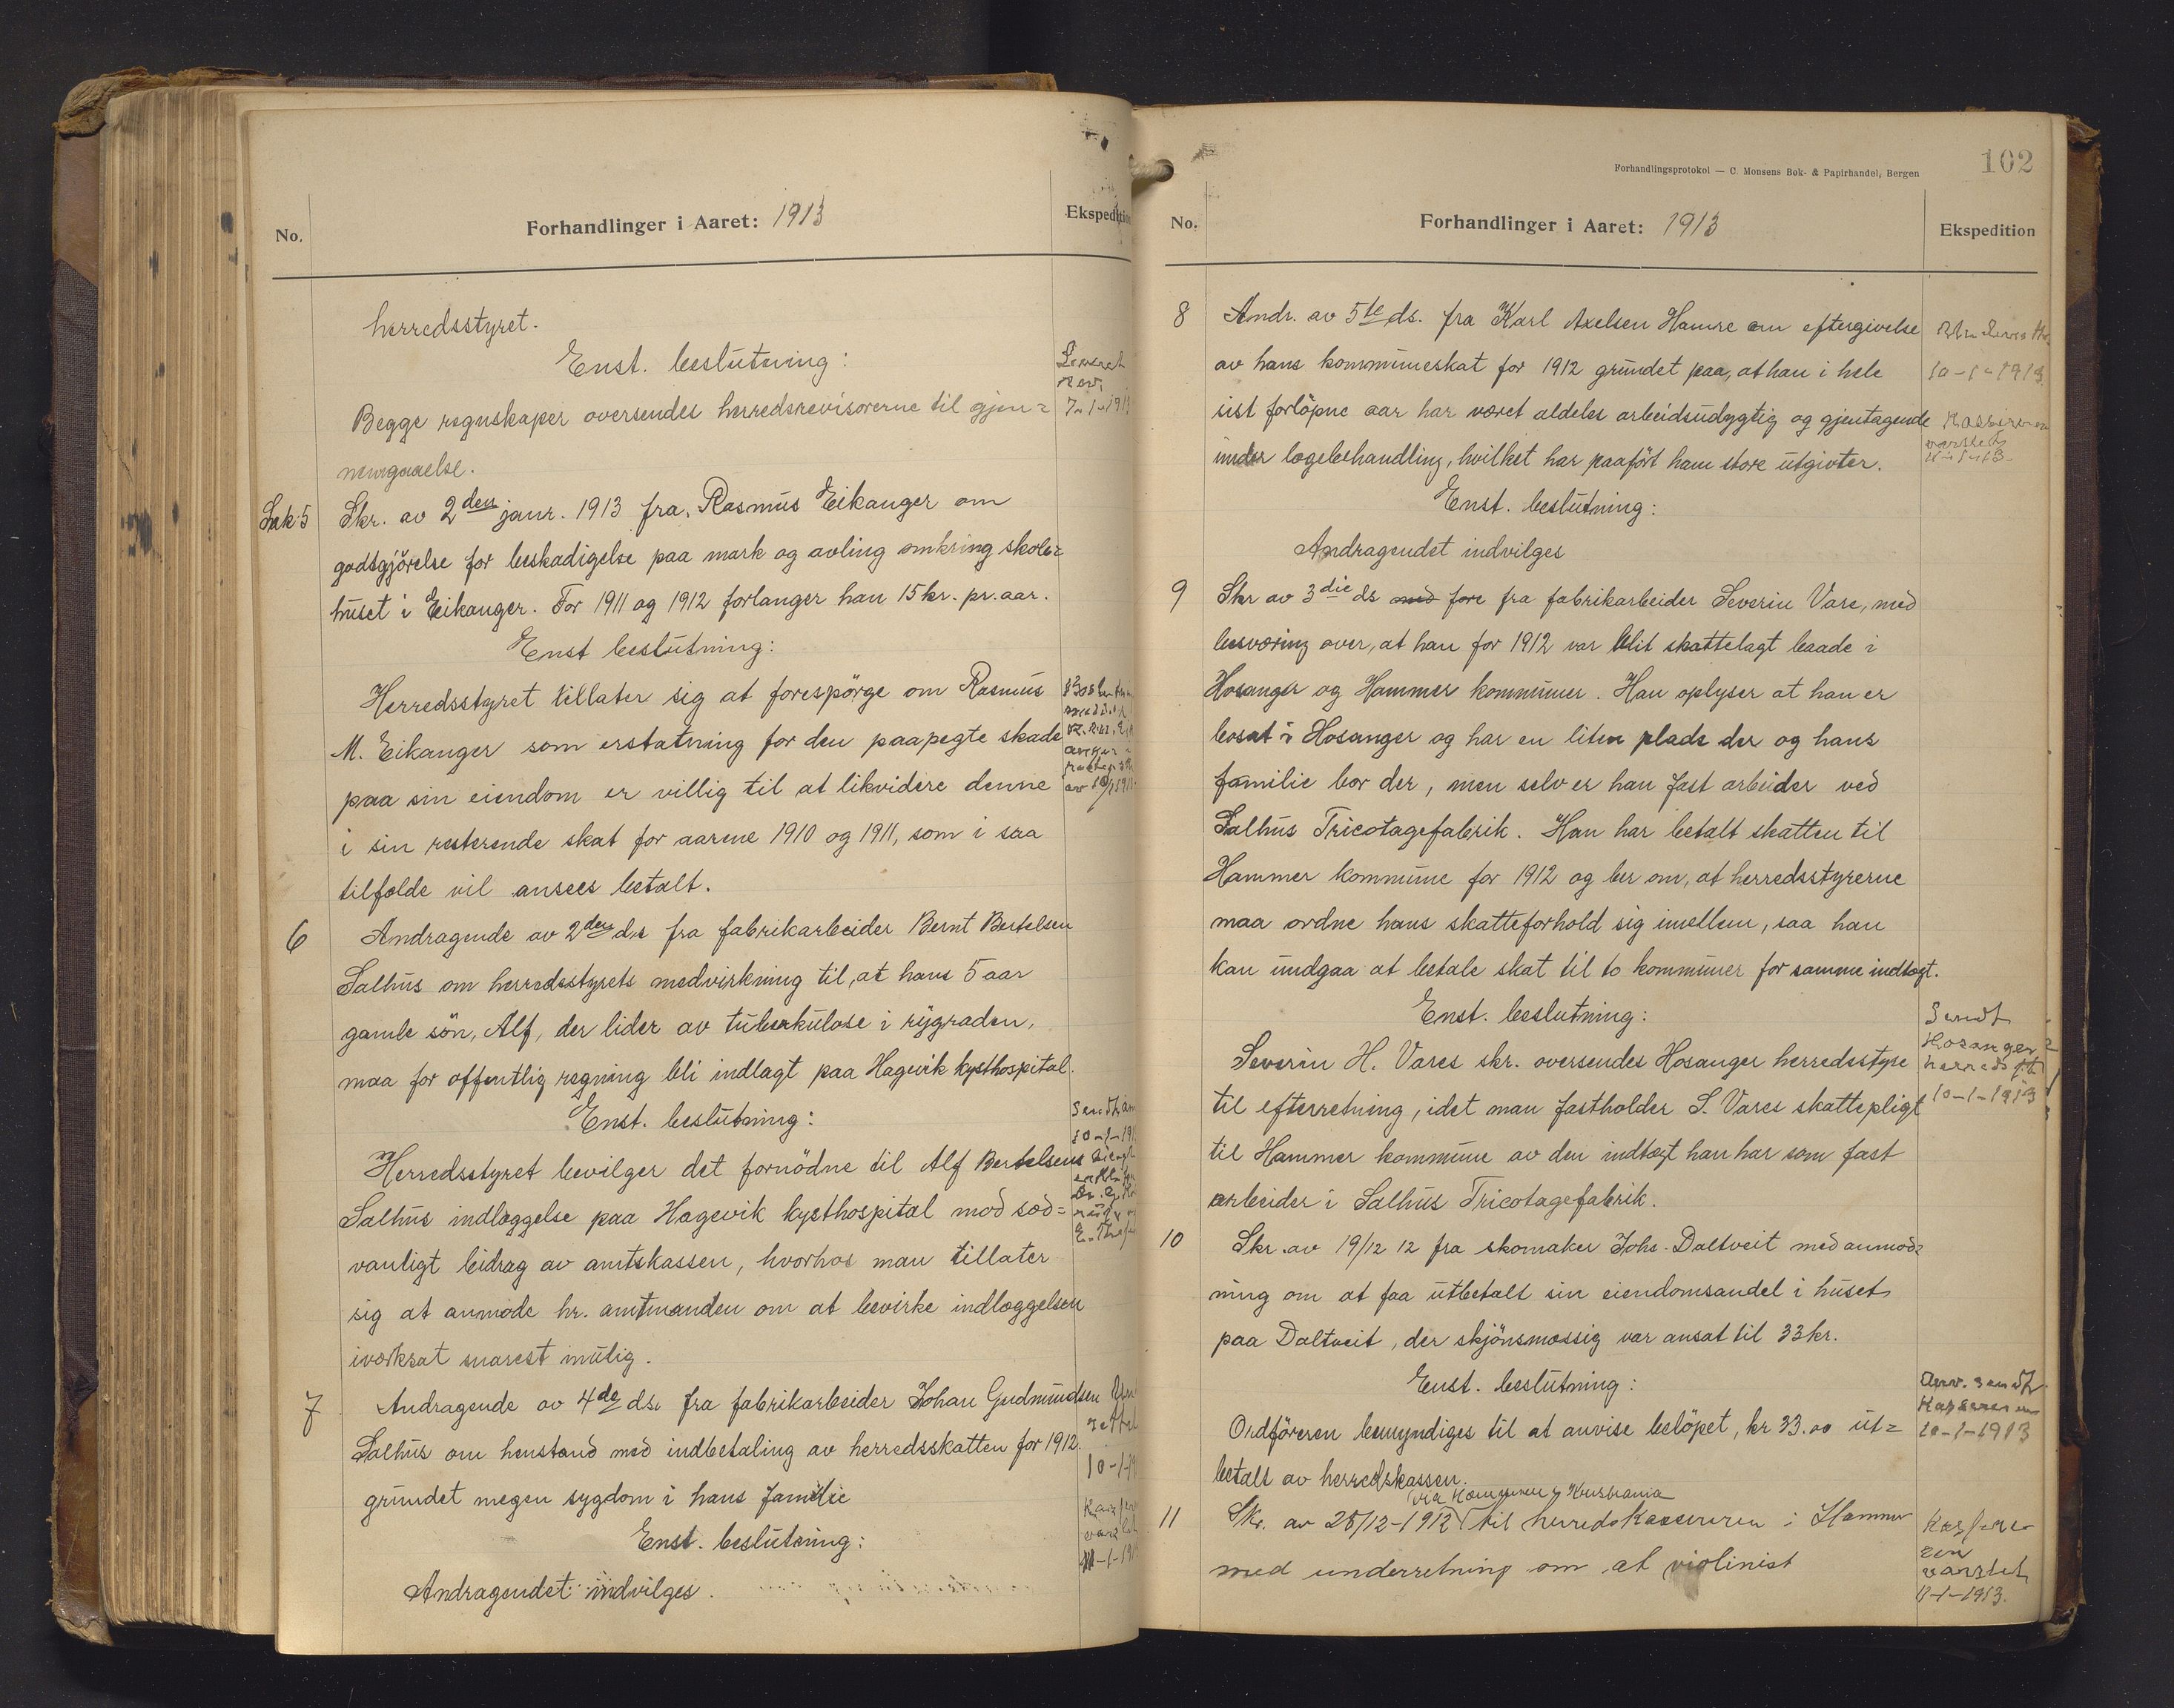 No.
Forhandlinger i Aaret: 1913
Ekspedition
herredsstyret.
Enst. beslutning:
Begge regnskaper oversendes herredsrevisorerne til gjen=
nemgaaelse.
7-1-1913
Sak 5
Skr. av 2den janr. 1913 fra Rasmus Eikanger om
godtgjörelse for beskadigelse paa mark og avling omkring skole=
huset i Eikanger. For 1911 og 1912 forlanger han 15 kr. pr. aar.
Enst beslutning:
Herredsstyret tillater sig at forespörge om Rasmus
M. Eikanger som erstatning for den paapegte skade
paa sin eiendom er villig til at likvidere denne
i sin resterende skat for aarene 1910 og 1911, som i saa
tilfælde vil ansees betalt.
6
Andragende av 2den ds fra fabrikarbeider Bernt Bertelsen
Salhus om herredsstyrets medvirkning til, at hans 5 aar
gamle sön, Alf, der lider av tuberkulose i rygraden,
maa for offentlig regning bli indlagt paa Hagevik kysthospital.
Enst. beslutning:
Herredsstyret bevilger det fornödne til Alf Bertelsens
Salhus indlæggelse paa Hagevik kysthospital mod sæd=
vanligt bidrag av amtskassen, hvorhos man tillater
sig at anmode hr. amtmanden om at bevirke indlæggelsen
iværksat snarest mulig.
7
Andragende av 4de ds. fra fabrikarbeider Johan Gudmundsen
Salhus om henstand med indbetaling av herredsskatten for 1912.
grundet megen sygdom i hans familie
Enst. beslutning:
Andragendet indvilges.
Forhandlingsprotokol — C. Monsens Bok- & Papirhandel, Bergen
102
No.
Forhandlinger i Aaret: 1913
Ekspedition
8
Andr. av 5te ds. fra Karl Axelsen Hamre om eftergivelse
av hans kommuneskat for 1912 grundet paa, at han i hele
sist forlöpne aar har været aldeles arbeidsudygtig og gjentagende
under lægebehandling, hvilket har paafört ham store utgivter.
10-1-1913.
Kassereren
varslet
11-1-13
Enst. beslutning:
Andragendet indvilges
9
Skr av 3die ds med fore fra fabrikarbeider Severin Vare, med
besværing over, at han for 1912 var blit skattelagt baade i
Hosanger og Hammer kommuner. Han oplyser at han er
bosat i Hosanger og har en liten plads der og hans
familie bor der, men selv er han fast arbeider ved
Salhus Tricotagefabrik. Han har betalt skatten til
Hammer kommune for 1912 og ber om, at herredsstyrerne
maa ordne hans skatteforhold sig imellem, saa han
kan undgaa at betale skat til to kommuner for samme indtægt.
Enst. beslutning:
Severin H. Vares skr. oversendes Hosanger herredsstyre
til efterretning, idet man fastholder S. Vares skattepligt
til Hammer kommune av den indtægt han har som fast
arbeider i Salhus Tricotagefabrik.
Sendt
Hosanger
herredsst
10-1-1913
10
Skr. av 19/12 12 fra skomaker Johs. Daltveit med anmod=
ning om at faa utbetalt sin eiendomsandel i huset
paa Daltveit, der skjönsmæssig var ansat til 33 kr.
Enst. beslutning:
Ordföreren bemyndiges til at anvise belöpet, kr 33.00 ut=
betalt av herredskassen.
Anv. sendt
Kassereren
10-1-1913
11
via Kæmneren i Kristiania
Skr. av 28/12-1912 til herredskassereren i Hammer
med underretning om at violinist
Kasserer
en
varslet
11-1-1913.